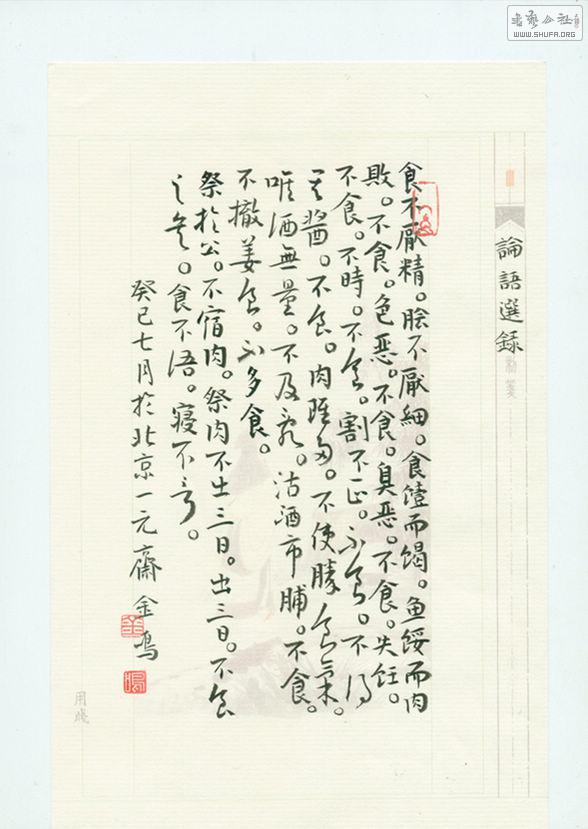 书艺公社
WWW.SHUFA.ORG
論語選録
食不厭精。脍不厭細。食饐而餲。鱼餒而肉
敗。不食。色恶。不食。臭恶。不食。失飪。
不食。不時。不食。割不正。不食。不得
其醬。不食。肉雖多。不使勝食氣。
唯酒無量。不及乱。沽酒市脯。不食。
不撤姜食。不多食。
祭於公。不宿肉。祭肉不出三日。出三日。不食
之矣。食不语。寝不言。
癸巳七月於北京一元齋金鸣
用牋